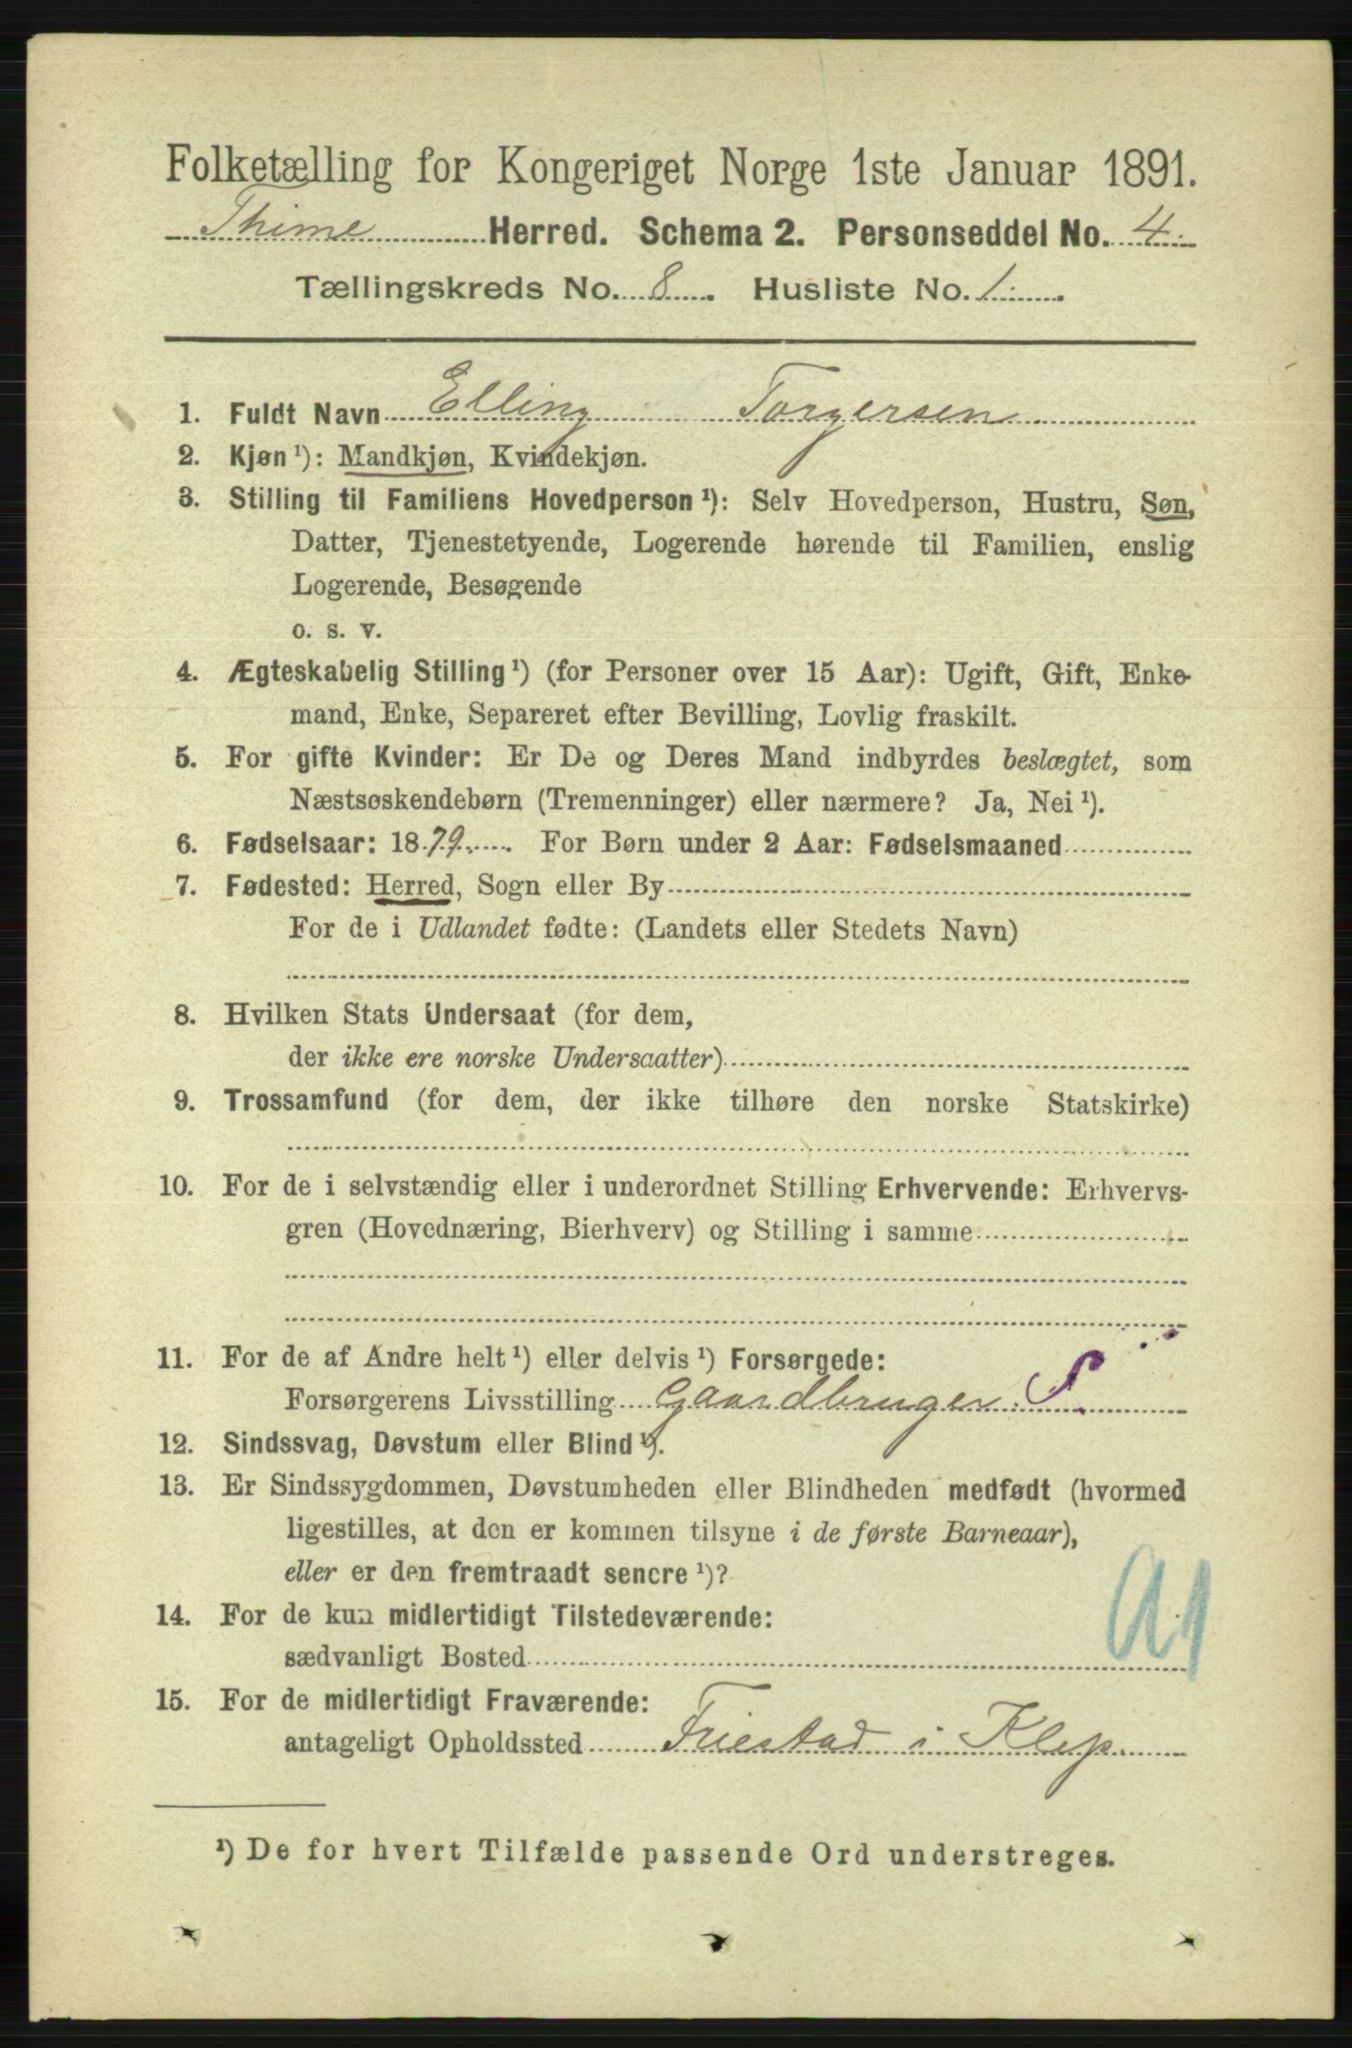 Folketælling for Kongeriget Norge 1ste Januar 1891.
Thime Herred. Schema 2. Personseddel No. 4.
Tællingskreds No. 8. Husliste No. 1.
1. Fuldt Navn Elling Torgersen
2. Kjøn ¹): Mandkjøn, Kvindekjøn.
3. Stilling til Familiens Hovedperson ¹): Selv Hovedperson, Hustru, Søn,
Datter, Tjenestetyende, Logerende hørende til Familien, enslig
Logerende, Besøgende
o. s. v.
4. Ægteskabelig Stilling ¹) (for Personer over 15 Aar): Ugift, Gift, Enke-
mand, Enke, Separeret efter Bevilling, Lovlig fraskilt.
5. For gifte Kvinder: Er De og Deres Mand indbyrdes beslægtet, som
Næstsøskendebørn (Tremenninger) eller nærmere? Ja, Nei ¹).
6. Fødselsaar: 1879. For Børn under 2 Aar: Fødselsmaaned
7. Fødested: Herred, Sogn eller By
For de i Udlandet fødte: (Landets eller Stedets Navn)
8. Hvilken Stats Undersaat (for dem,
der ikke ere norske Undersaatter)
9. Trossamfund (for dem, der ikke tilhøre den norske Statskirke)
10. For de i selvstændig eller i underordnet Stilling Erhvervende: Erhvervs-
gren (Hovednæring, Bierhverv) og Stilling i samme
11. For de af Andre helt ¹) eller delvis ¹) Forsørgede:
Forsørgerens Livsstilling Gaardbruger. S.
12. Sindssvag, Døvstum eller Blind ¹).
13. Er Sindssygdommen, Døvstumheden eller Blindheden medfødt (hvormed
ligestilles, at den er kommen tilsyne i de første Barneaar),
eller er den fremtraadt senere ¹)?
14. For de kun midlertidigt Tilstedeværende:
sædvanligt Bosted
A1
15. For de midlertidigt Fraværende:
antageligt Opholdssted Friestad i Klep.
¹) De for hvert Tilfælde passende Ord understreges.